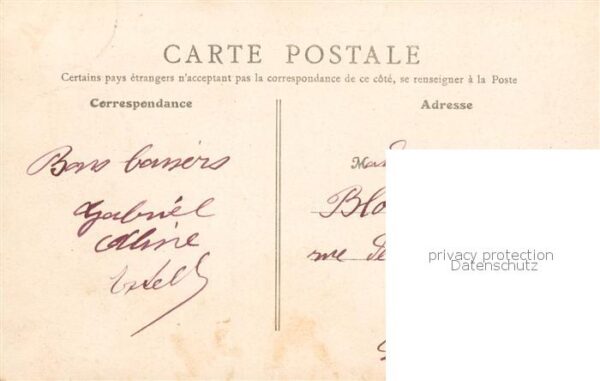 CARTE POSTALE
Certains pays étrangers n'acceptant pas la correspondance de ce côté, se renseigner à la Poste
Correspondance
Adresse
Bons baisers
Gabriel
Aline
M
Blo
rue
privacy protection
Datenschutz